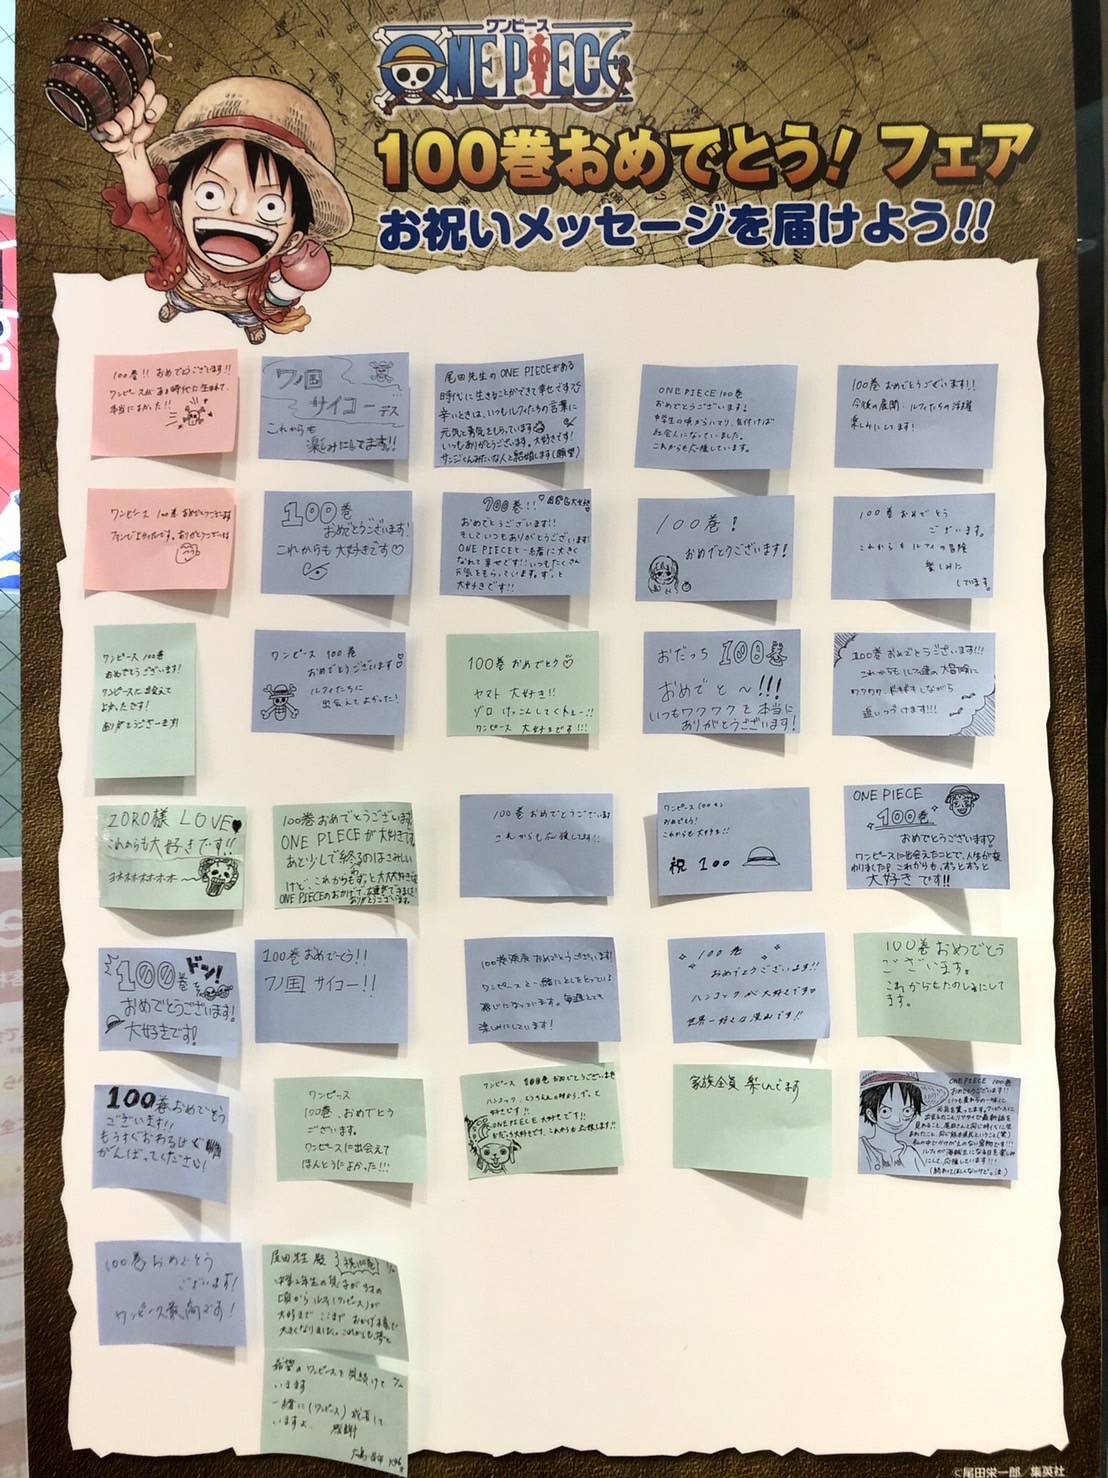 ワンピース
ONE PIECE
100巻おめでとう！ フェア
お祝いメッセージを届けよう!!
100巻!! おめでとうございます!!
ワンピースがある時代に生まれて、
本当によかった!!
ワノ国
サイコーデス
これからも
楽しみにしてます!!
尾田先生のONE PIECEがある
時代に生きることができて幸せです
辛いときは、いつもルフィたちの言葉に
元気と勇気をもらっています
いつもありがとうございます。大好きです!
サンジくんみたいな人と結婚します(願望)
ONE PIECE 100巻
おめでとうございます!
中学生の頃からハマり、気付けば
社会人になっていました。
これからも応援しています。
100巻 おめでとうございます!!
今後の展開・ルフィたちの活躍
楽しみにしてます!
ワンピース 100巻 おめでとうございます
ファンでよかったです。ありがとうございます
100巻
おめでとうございます!
これからも 大好きです♡
100巻!!
おめでとうございます!!
そしていつもありがとうございます!
ONE PIECEと一緒に大きく
なれて幸せです!!いつもたくさん
元気をもらっています。ずっと
大好きです!!
100巻!
おめでとうございます!
100巻 おめでとう
ございます。
これからも ルフィの冒険
楽しみに
しています。
ワンピース 100巻
おめでとうございます!
ワンピースに出会えて
よかったです!
ありがとうございます!
ワンピース 100巻
おめでとうございます♡
ルフィたちに
出会えてよかった!
100巻 おめでとう♡
ヤマト 大好き!!
ゾロ けっこんしてくれー!!
ワンピース 大好きです!!!
おだっち 100巻
おめでと～!!!
いつもワクワクを本当に
ありがとうございます!
100巻 おめでとうございます!!!
これからもルフィ達の大冒険に
ワクワク、
しながら
追いつづけます!!!
ZORO様 LOVE♥
これからも大好きです!!
ヨホホホホホホ
100巻おめでとうございます!
ONE PIECEが大好きです
あと少しで終るのはさみしい
けど、これからもずっと大大大好き
ONE PIECEのおかげで、
ありがとうございます。
100巻 おめでとうございます
これからも応援してます!!
ワンピース 100巻
おめでとう!
これからも 大好き!!
祝 100
ONE PIECE
100巻
おめでとうございます!
ワンピースに出会えたことで、人生が変
わりました! これからも、ずっとずっと
大好きです!!
100巻 ドン!
を
おめでとうございます!
大好きです!
100巻おめでとう!!
ワノ国 サイコー!!
100巻 おめでとうございます!
ワンピースと一緒に としをとっている
感じになっています。毎週とても
楽しみにしています!
100巻
おめでとうございます!!
ハンコックが 大好きです♡
世界一好きな漫画です!!
100巻おめでとう
ございます。
これからもたのしみにして
ます。
100巻おめでとう
ございます!!
もうすぐおわるけど
がんばってください!
ワンピース
100巻、おめでとう
ございます。
ワンピースに出会えて
ほんとうによかった!!!
ワンピース 100巻 おめでとうございます
ずっと
好きです!!
ONE PIECE大好きです!!
これからも応援します!!
家族全員 楽しんでます
ONE PIECE 100巻
おめでとうございます!!
100巻おめでとう
ございます!
ワンピース最高です!
尾田先生殿 祝100巻
中学2年生の息子が
頃から ルフィ(ワンピース)が
大好きで ここまで おかげ様で
大きくなりました。これからも 夢と
希望の ワンピースを 見続けて
います
一緒に(ワンピース) 成長して
いますよ 感謝
©尾田栄一郎／集英社